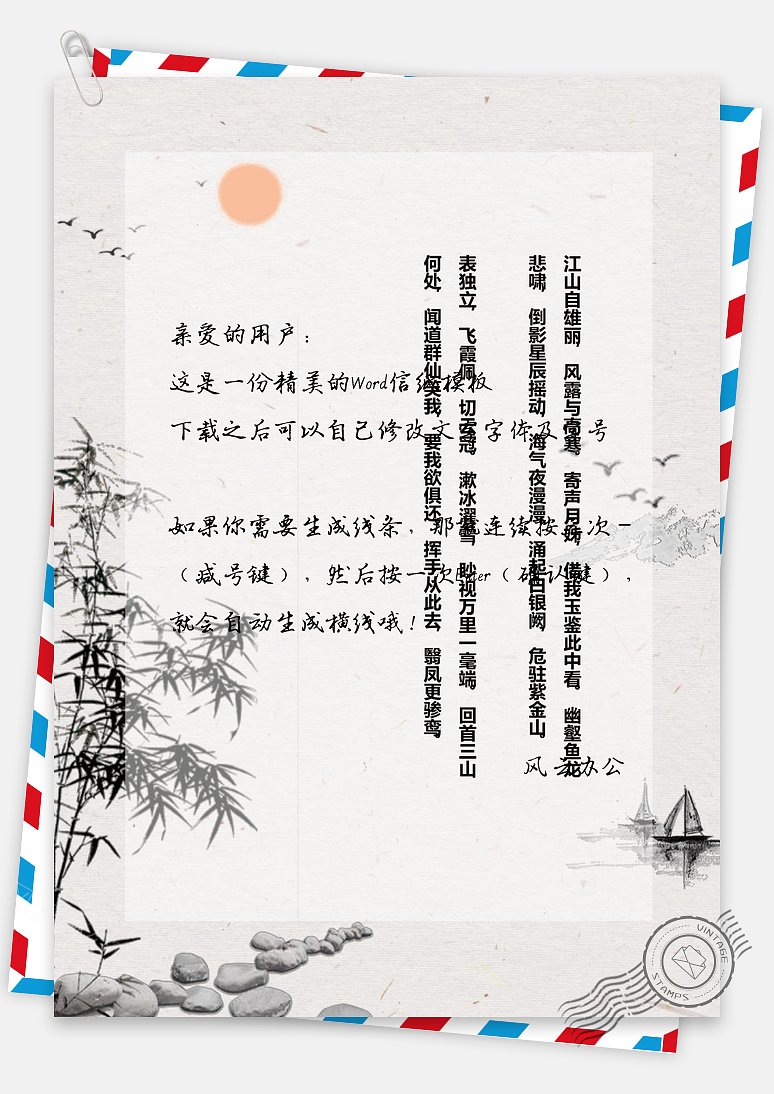 亲爱的用户：
这是一份精美的Word信纸模板
下载之后可以自己修改文字字体及字号
如果你需要生成线条，那就连续按三次-
（减号键），然后按一次Enter（确认键），
就会自动生成横线哦！
风云办公
江山自雄丽，风露与高寒。寄声月姊，借我玉鉴此中看。幽壑鱼龙
悲啸，倒影星辰摇动，海气夜漫漫。涌起白银阙，危驻紫金山。
表独立，飞霞佩，切云冠。漱冰濯雪，眇视万里一毫端。回首三山
何处，闻道群仙笑我，要我欲俱还。挥手从此去，翳凤更骖鸾。
VINTAGE
STAMPS